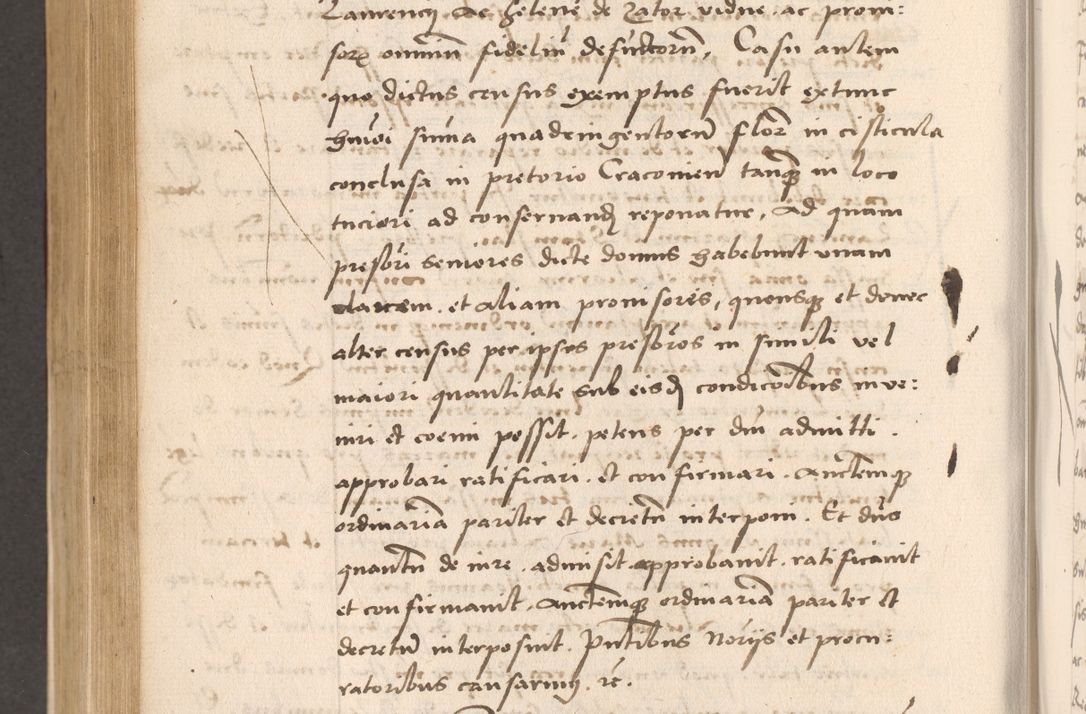 Laurencij ac Helene de Zator vidue ac provi:
sorꝫ omniũ fideliũ defũctorũ, Casu autem
quo dictus census exemptus fuerit extunc
hmõi sum̃a quadringentorũ florꝫ in cisticula
conclusa in pretorio Cracovień tanqꝫ in loco
tuciori ad conservandꝫ reponatur, ad quam
prefori seniores dicte domus habebunt unam
clavem et aliam provisores, quousqꝫ et donec
alter census per ipsos presbr̃os in simili vel
maiori quantitate sub eisdꝫ condicõibus inve:
niri et coemi possit. petens per dñũ admitti.
approbari ratificari. et confirmari. Auctemqꝫ
ordinariã pariter et decretũ interponi. Et dñs
quantũ de iure. admisit. approbavit. ratificavit
et confirmavit. Auctemqꝫ ordinariã pariter et
decretũ interposuit. Pñtibus Norijs et procu:
ratoribus causarum. rc̃.